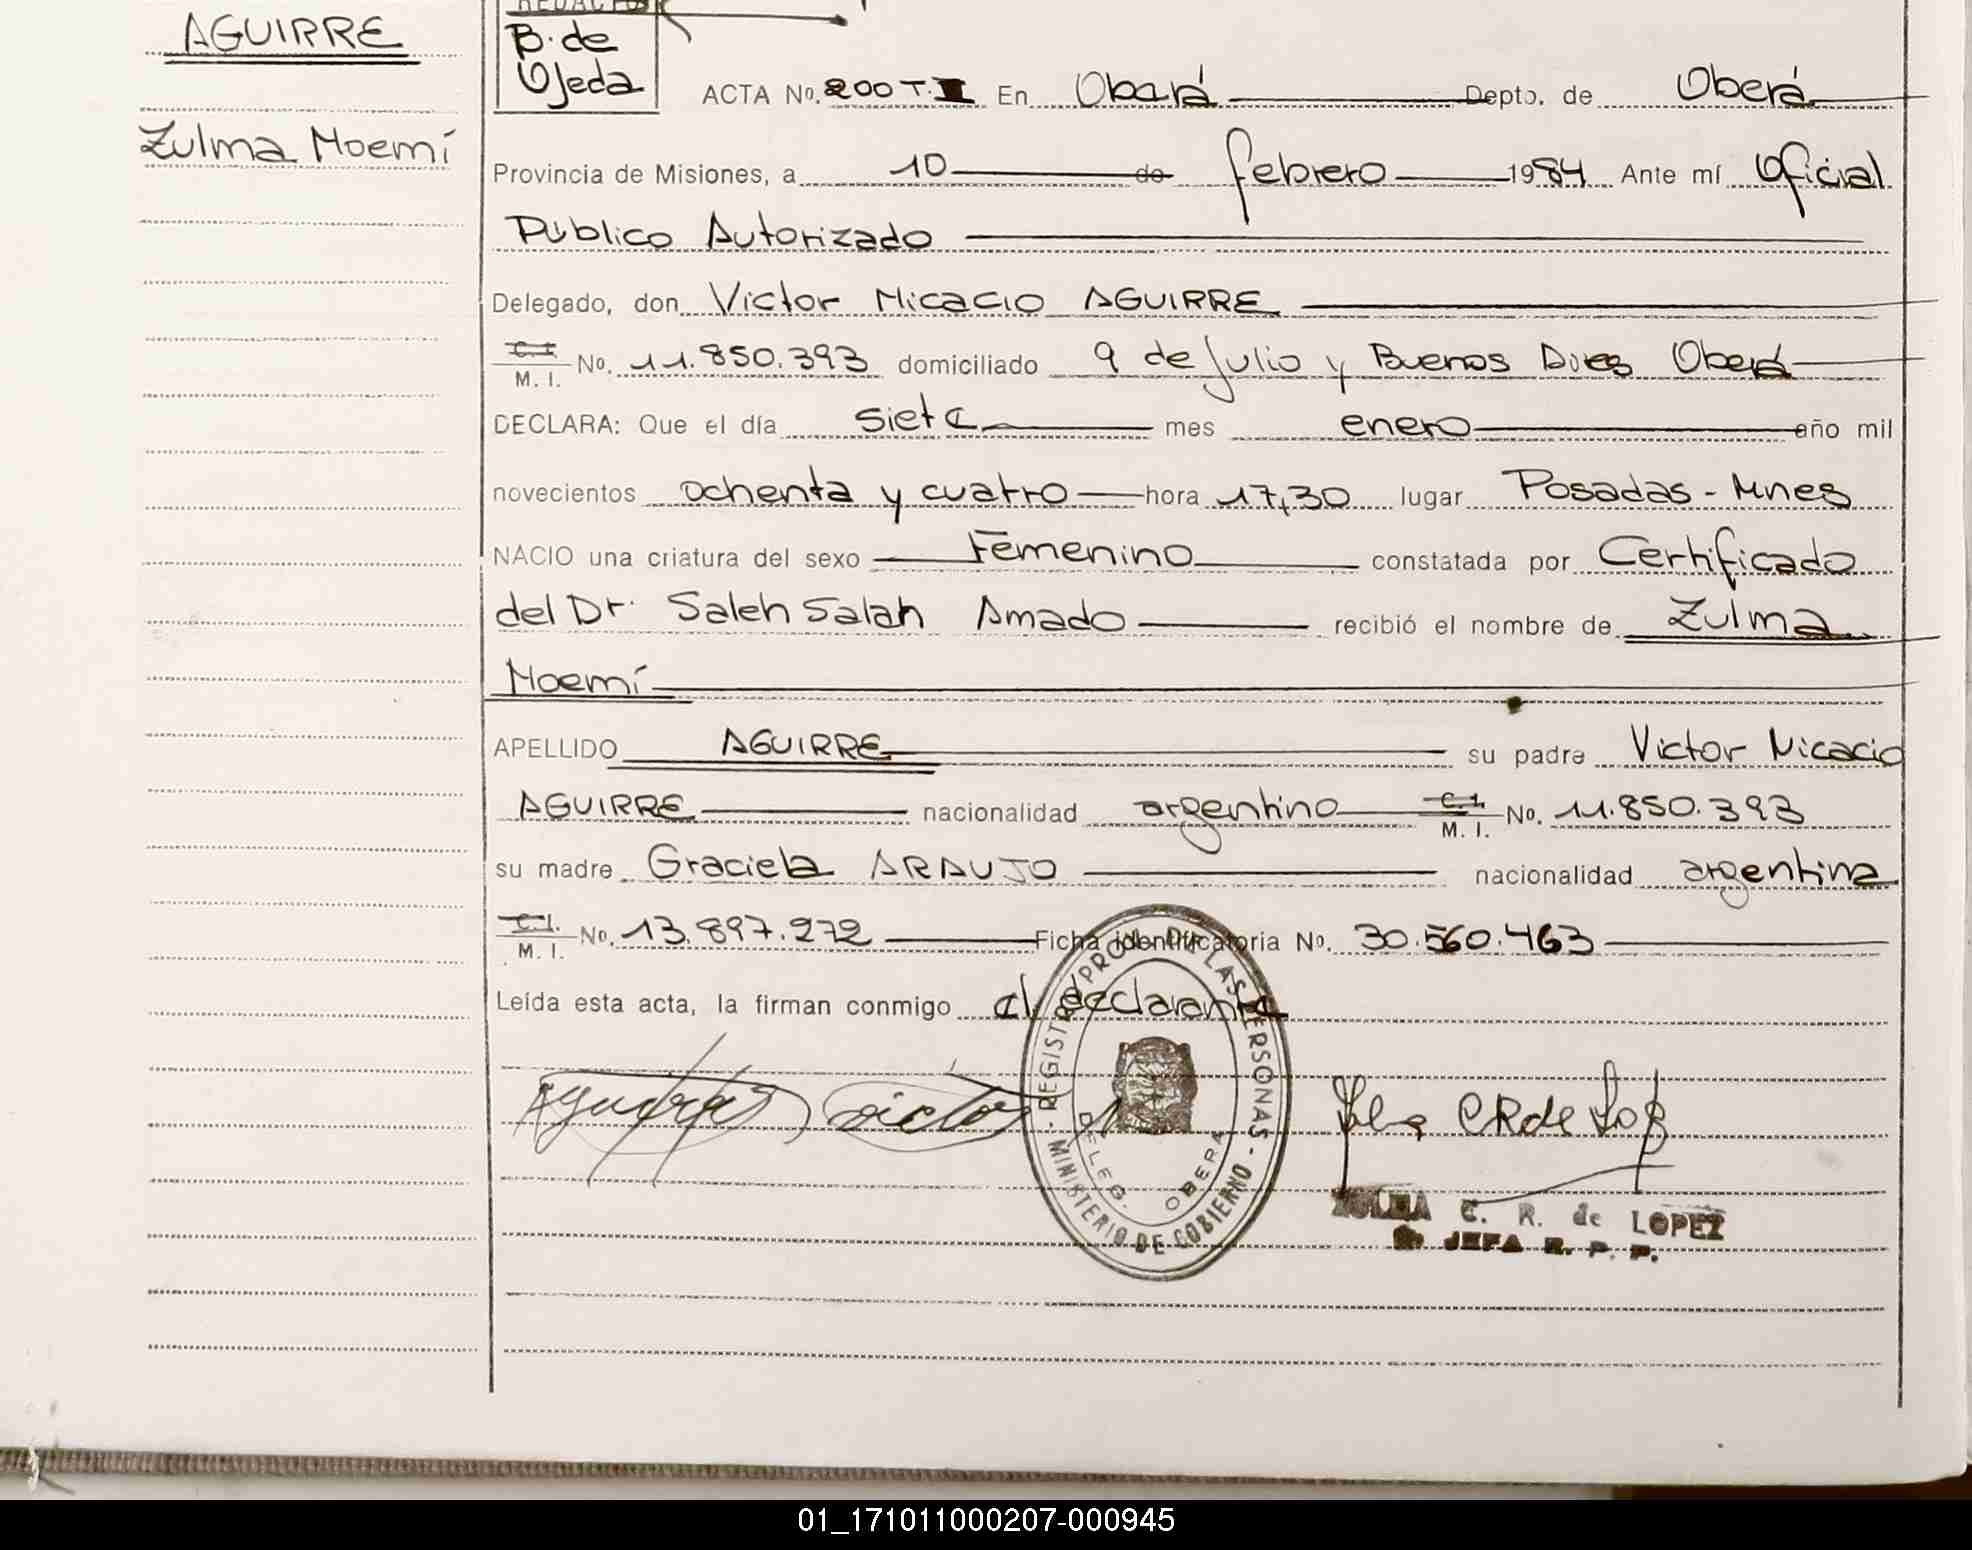 AGUIRRE
Zulma Noemí
REDACTOR
B. de
Ojeda
ACTA No. 200 T. I En Oberá Depto. de Oberá
Provincia de Misiones, a 10 de febrero 1984 Ante mí Oficial
Público Autorizado
Delegado, don Victor Nicacio AGUIRRE
C. I. M. I. No. 11.850.393 domiciliado 9 de Julio y Buenos Aires Oberá
DECLARA: Que el día siete mes enero año mil
novecientos ochenta y cuatro hora 17,30 lugar Posadas - Mnes
NACIO una criatura del sexo Femenino constatada por Certificado
del Dr. Saleh Salah Amado recibió el nombre de Zulma
Noemí
APELLIDO AGUIRRE su padre Victor Nicacio
AGUIRRE nacionalidad argentino C. I. M. I. No. 11.850.393
su madre Graciela ARAUJO nacionalidad argentina
C. I. M. I. No. 13.897.272 Ficha identificatoria No. 30.560.463
Leída esta acta, la firman conmigo el declarante
REGISTRO PROV. DE LAS PERSONAS - MINISTERIO DE GOBIERNO -
DELEG. OBERA
ZULMA C. R. de LOPEZ
JEFA R. P. P.
01_171011000207-000945